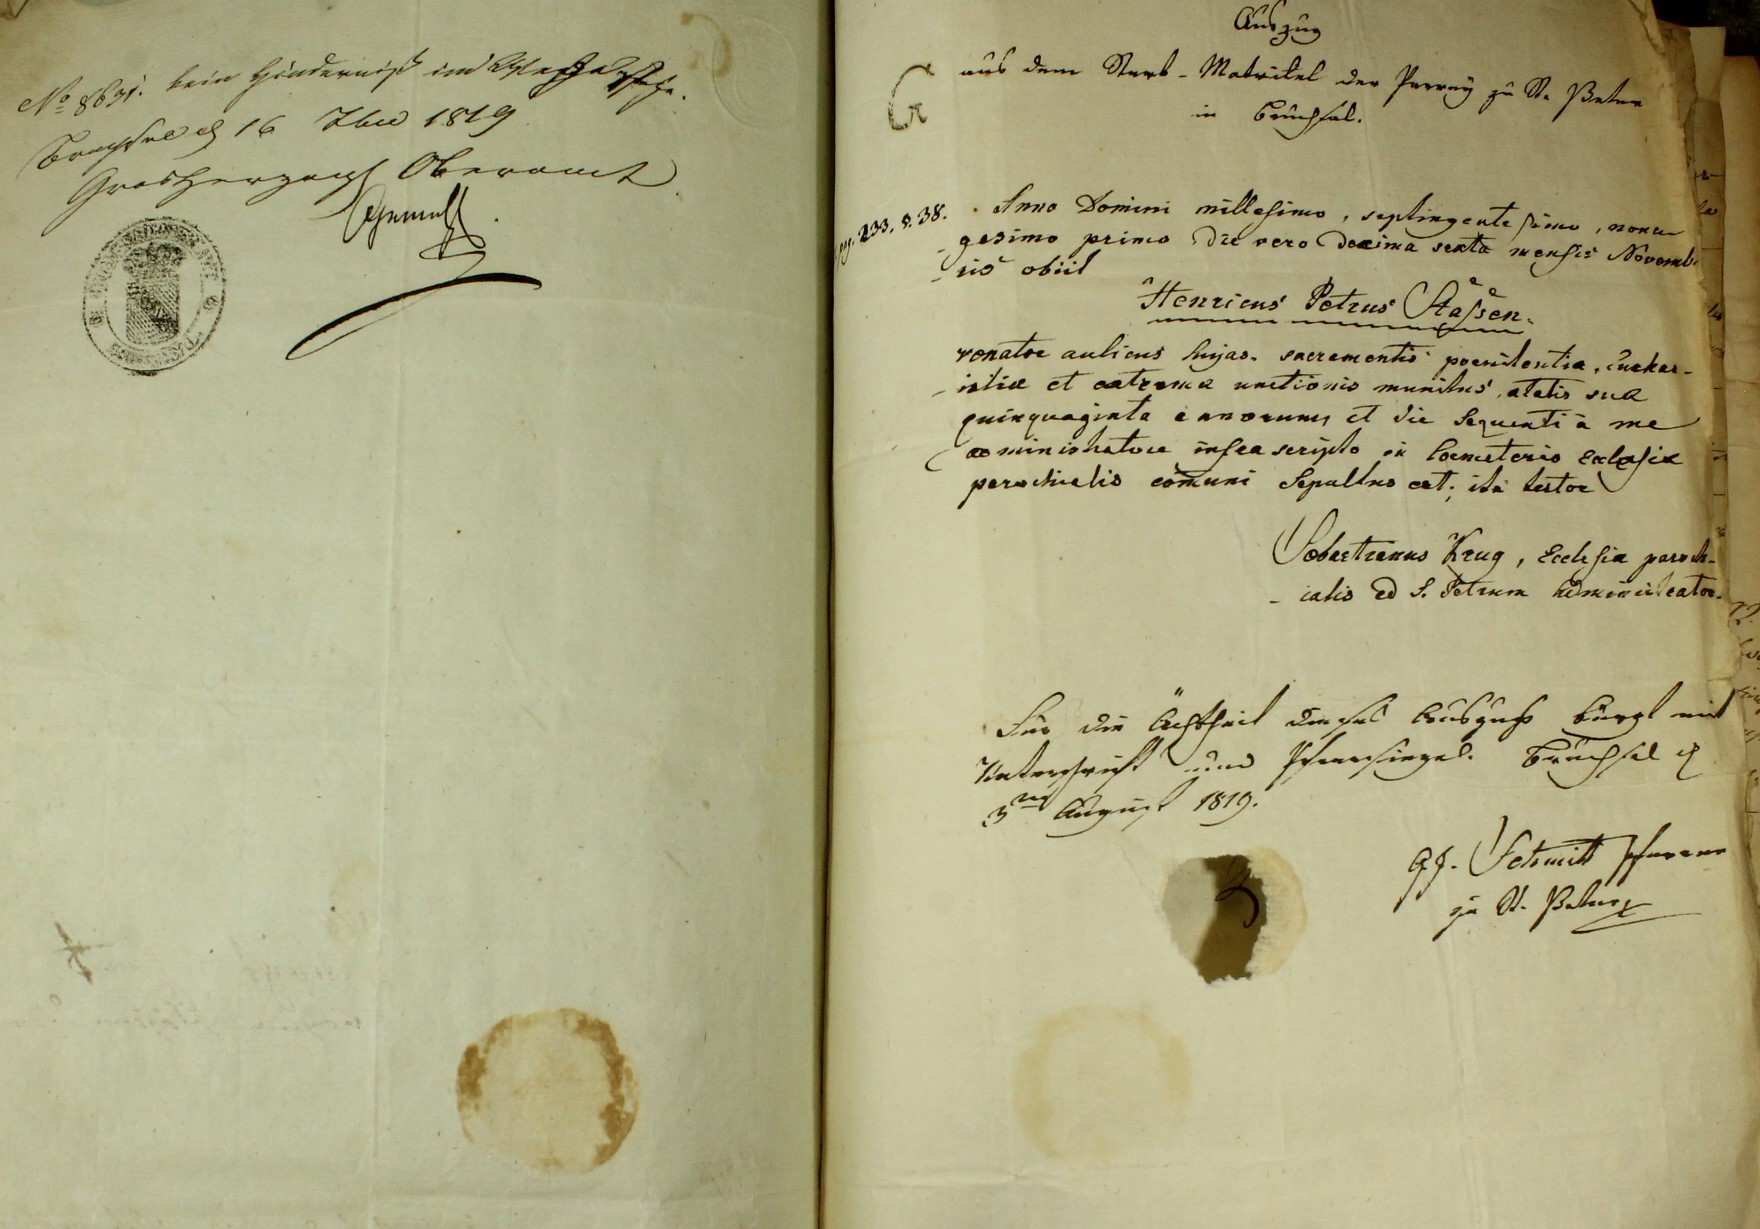 No 8631. kein Hinderniß im
Bruchsal d 16 7ber 1819
Grosherzogl Oberamt
Auszug
aus dem Sterb-Matrikel der Pfarrey zu St. Peter
in Bruchsal.
G
pag. 233. §. 38. Anno Domini millesimo, septingentesimo, nona-
gesimo primo die vero decima sexta mensis Novemb-
-ris obiit
Henricus Petrus Stassen.
venator aulicus hujas. sacramentis poenitentiæ, eucha-
-istiæ et extremæ unctionis munitus, ætatis suæ
quinquaginta annorum, et die sequenti à me
administratore infrascripto in Coemeterio Ecclesiæ
parochialis comuni sepultus est; ità testor
Sebastianus Krug, Ecclesiæ paroch-
-ialis ad S. Petrum administrator.
Für die Ächtheit dieses Auszuges bürgt mit
Unterschrift und Pfarrsiegel. Bruchsal d
3ten August 1819.
Schmitt Pfarrer
zu St. Peter